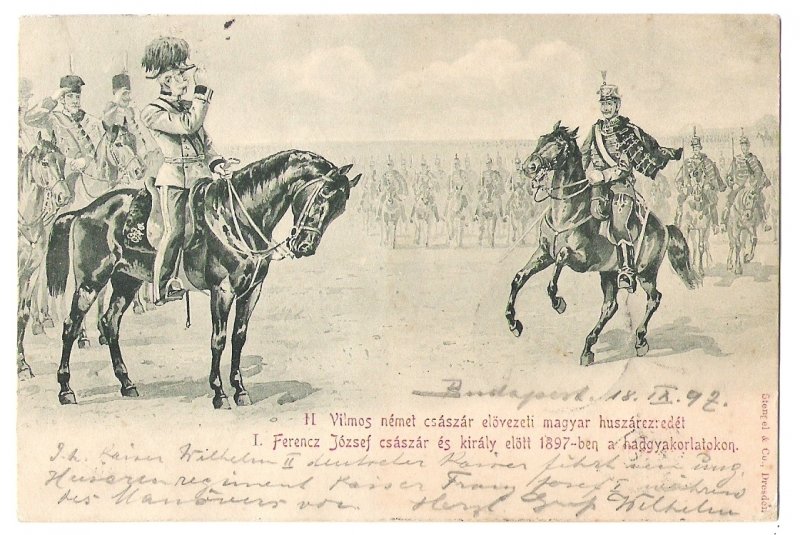 Budapest, 18. IX. 97.
II Vilmos német császár elővezeti magyar huszárezredét
I. Ferencz József császár és király előtt 1897-ben a nadgyakorlatokon.
Kaiser Wilhelm II deutscher Kaiser führt sein ung.
Husarenregiment Kaiser Franz Josef I während
des Manövers vor. Herzl Gruß Wilhelm
Stengel & Co., Dresden